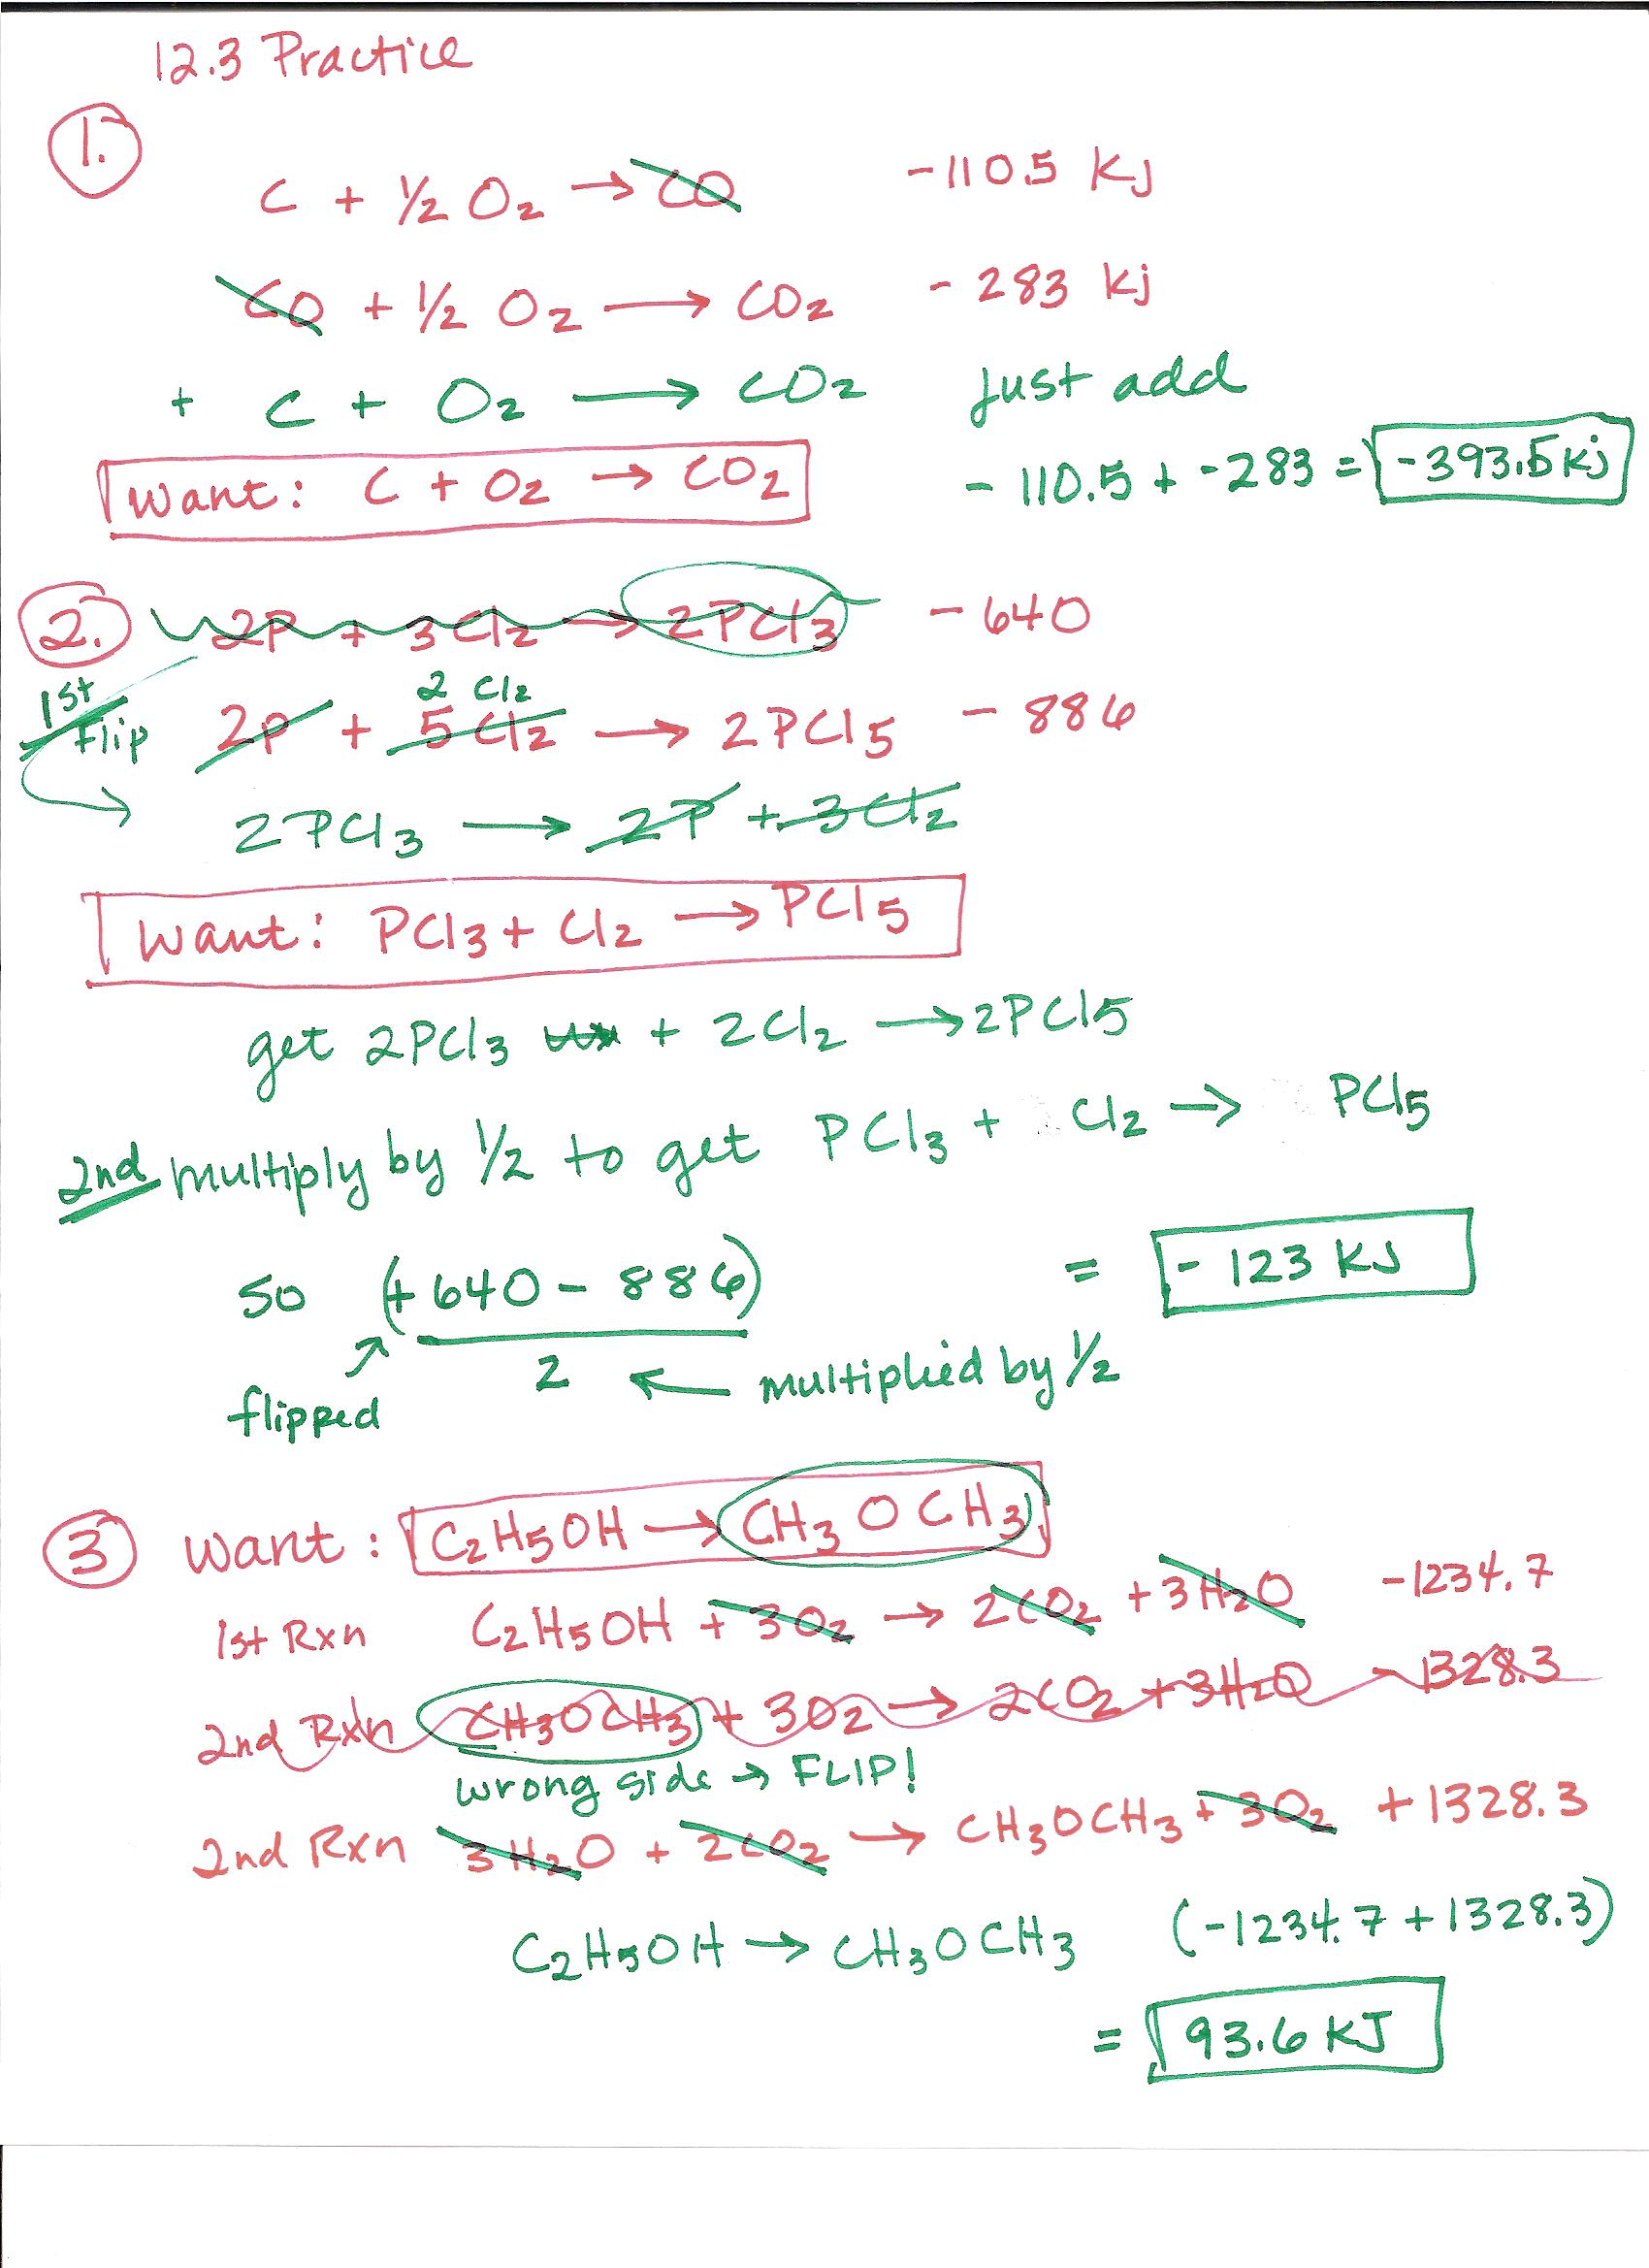 12.3 Practice
1.
C + ½ O₂ → CO -110.5 KJ
CO + ½ O₂ → CO₂ - 283 kj
+ C + O₂ → CO₂ just add
Want: C + O₂ → CO₂ - 110.5 + -283 = -393.5 kj
2. 2P + 3Cl₂ → 2PCl₃ - 640
1st Flip
2 Cl₂
2P + 5Cl₂ → 2PCl5 - 886
2PCl₃ → 2P + 3Cl₂
Want: PCl₃ + Cl₂ → PCl5
get 2PCl₃ + 2Cl₂ → 2PCl5
2nd multiply by ½ to get PCl₃ + Cl₂ → PCl5
so (+640 - 886) = - 123 KJ
2 ← multiplied by ½
flipped
3 Want: C₂H5OH → CH₃OCH₃
1st Rxn C₂H5OH + 3O₂ → 2CO₂ + 3H₂O -1234.7
2nd Rxn CH₃OCH₃ + 3O₂ → 2CO₂ + 3H₂O - 1328.3
wrong side → FLIP!
2nd Rxn 3H₂O + 2CO₂ → CH₃OCH₃ + 3O₂ +1328.3
C₂H5OH → CH₃OCH₃ (-1234.7 + 1328.3)
= 93.6 KJ